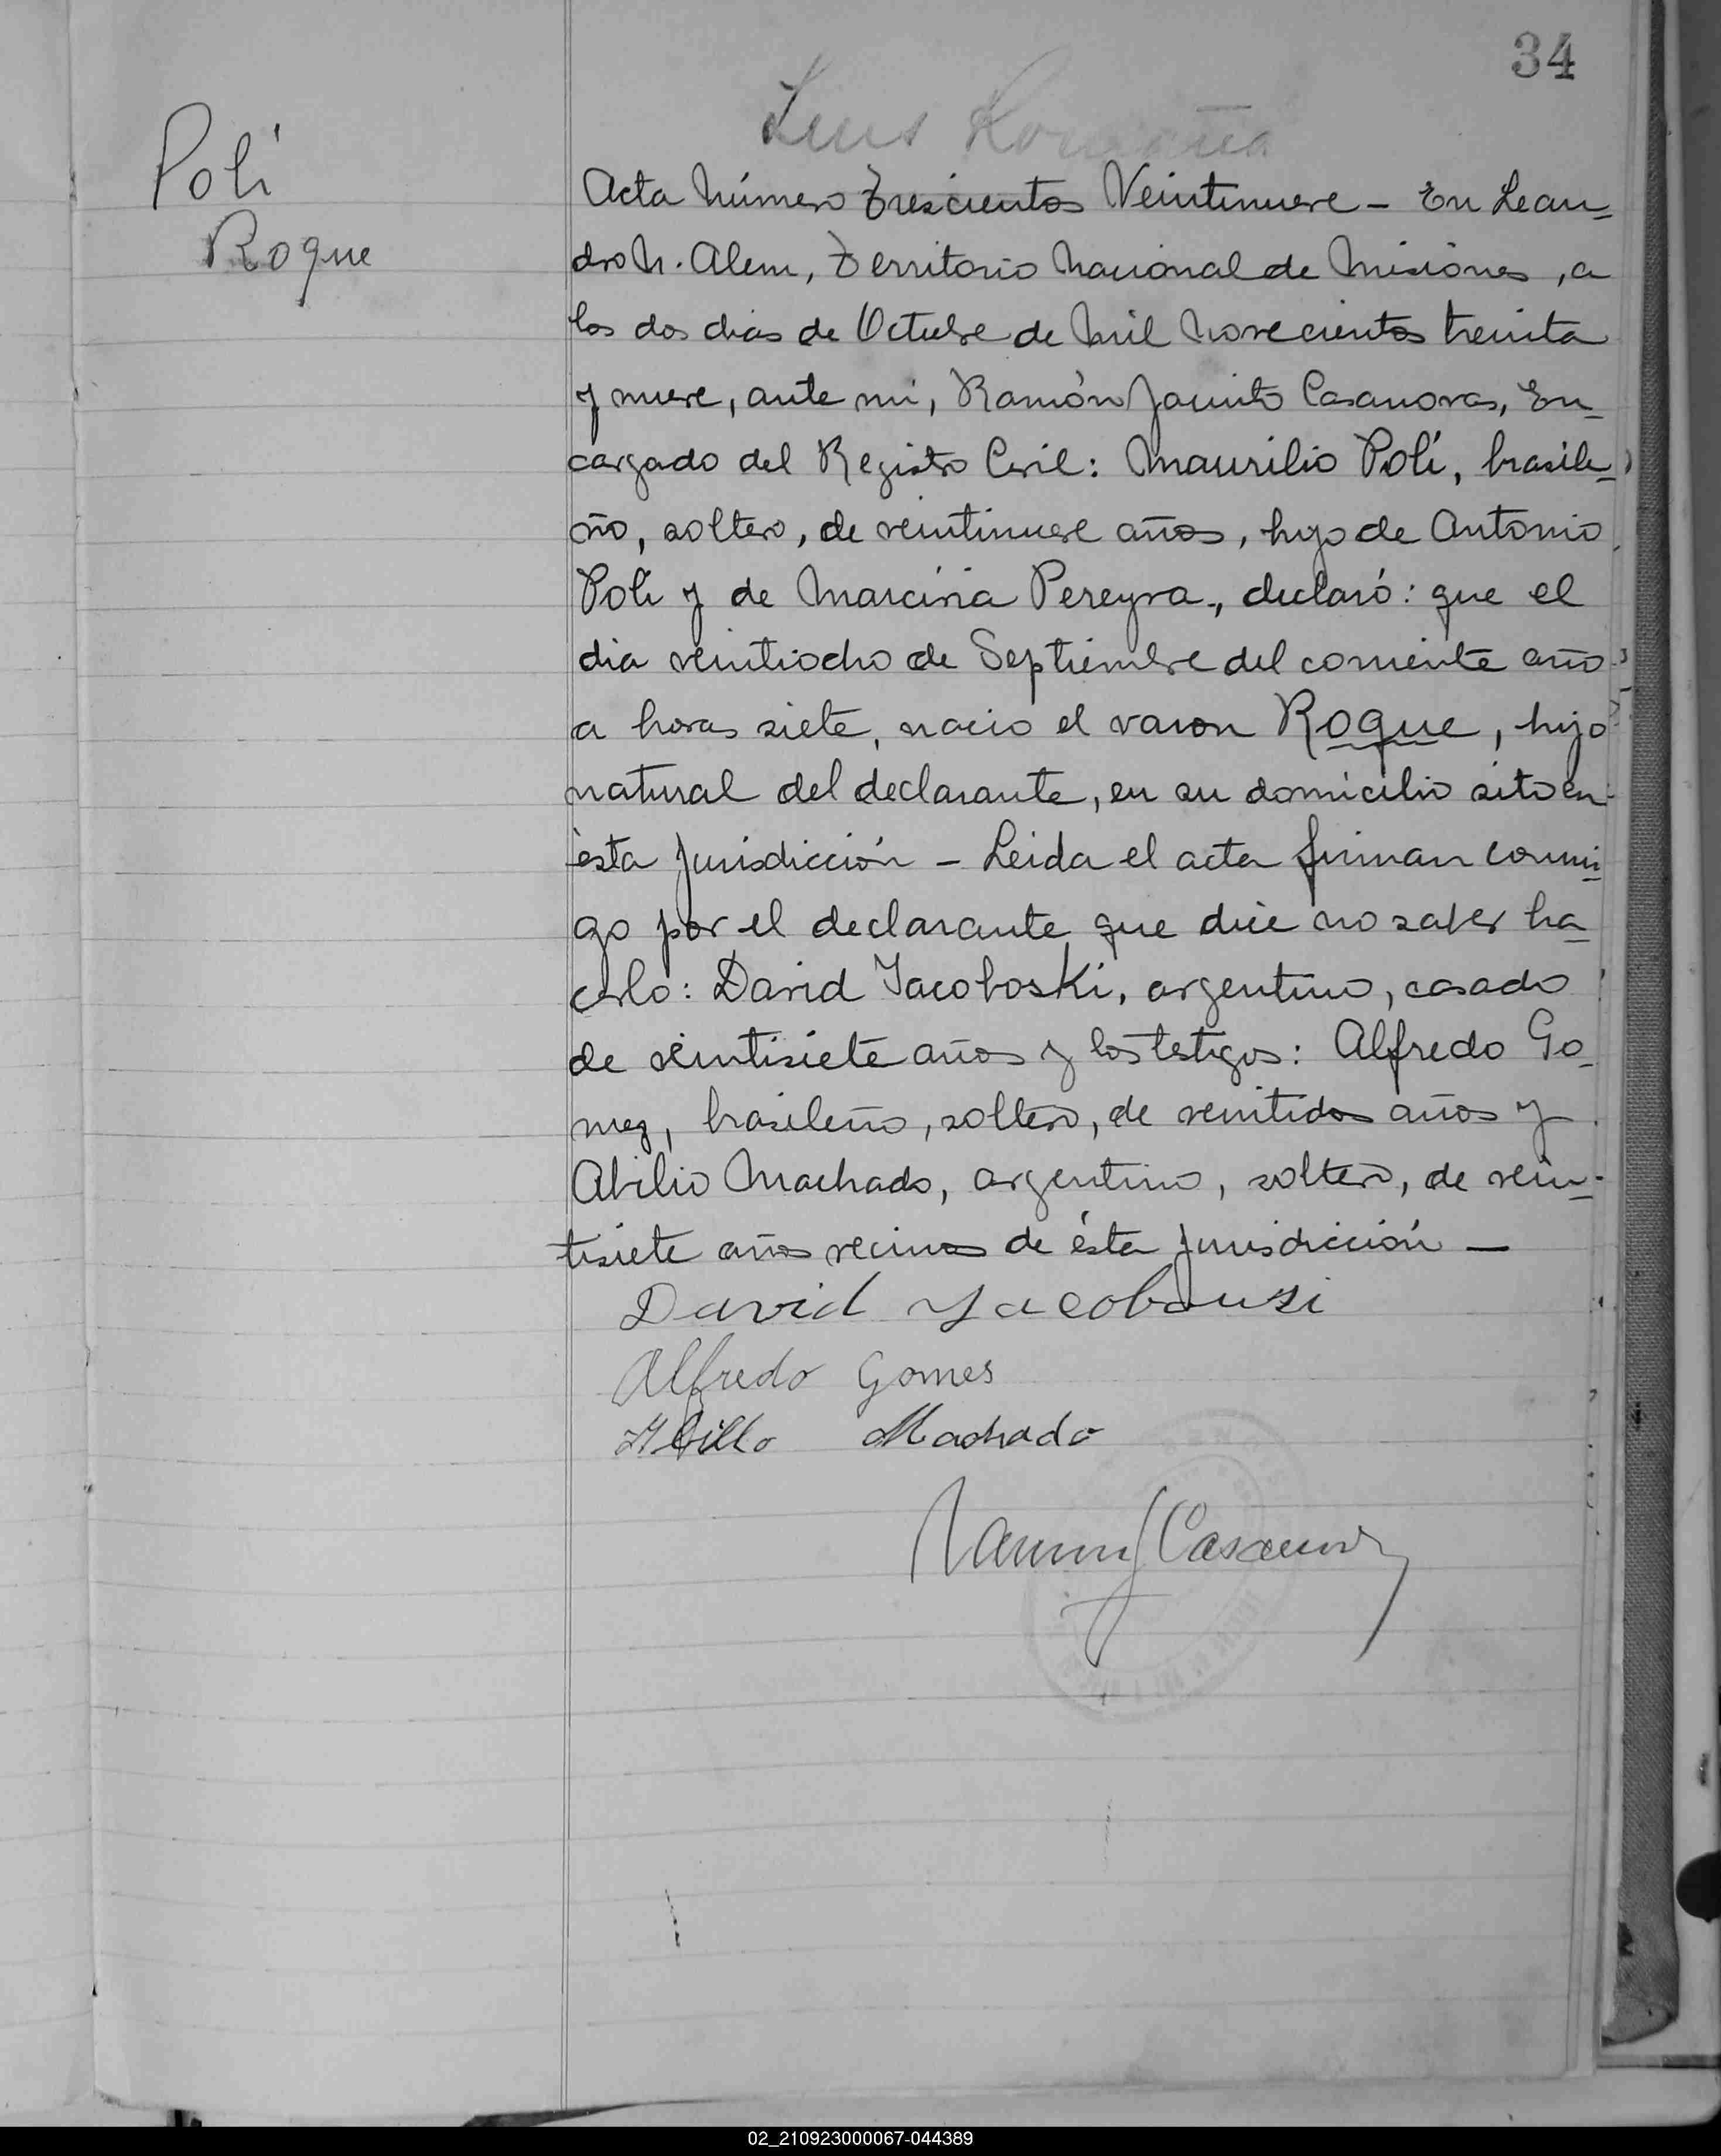 34
Luis Romaña
Polí
Roque
Acta Número Trescientos Veintinueve - En Lean-
dro N. Alem, Territorio Nacional de Misiones, a
los dos dias de Octubre de Mil Novecientos treinta
y nueve, ante mi, Ramón Jacinto Casanovas, En-
cargado del Registro Civil: Maurilio Polí, brasile-
ño, soltero, de veintinueve años, hijo de Antonio
Polí y de Marcina Pereyra, declaró: que el
dia veintiocho de Septiembre del corriente año
a horas siete, nacio el varon Roque, hijo
natural del declarante, en su domicilio sito en
ésta Jurisdicción - Leida el acta firman conmi-
go por el declarante que dice no saber ha-
cerlo: David Jacoboski, argentino, casado
de veintisiete años y los testigos: Alfredo Go-
mez, brasileño, soltero, de veintidos años y
Abilio Machado, argentino, soltero, de vein-
tisiete años vecinos de ésta Jurisdicción -
David
Alfredo Gomes
Abilio Machado
Ramón J Casanovas
02_210923000067-044389